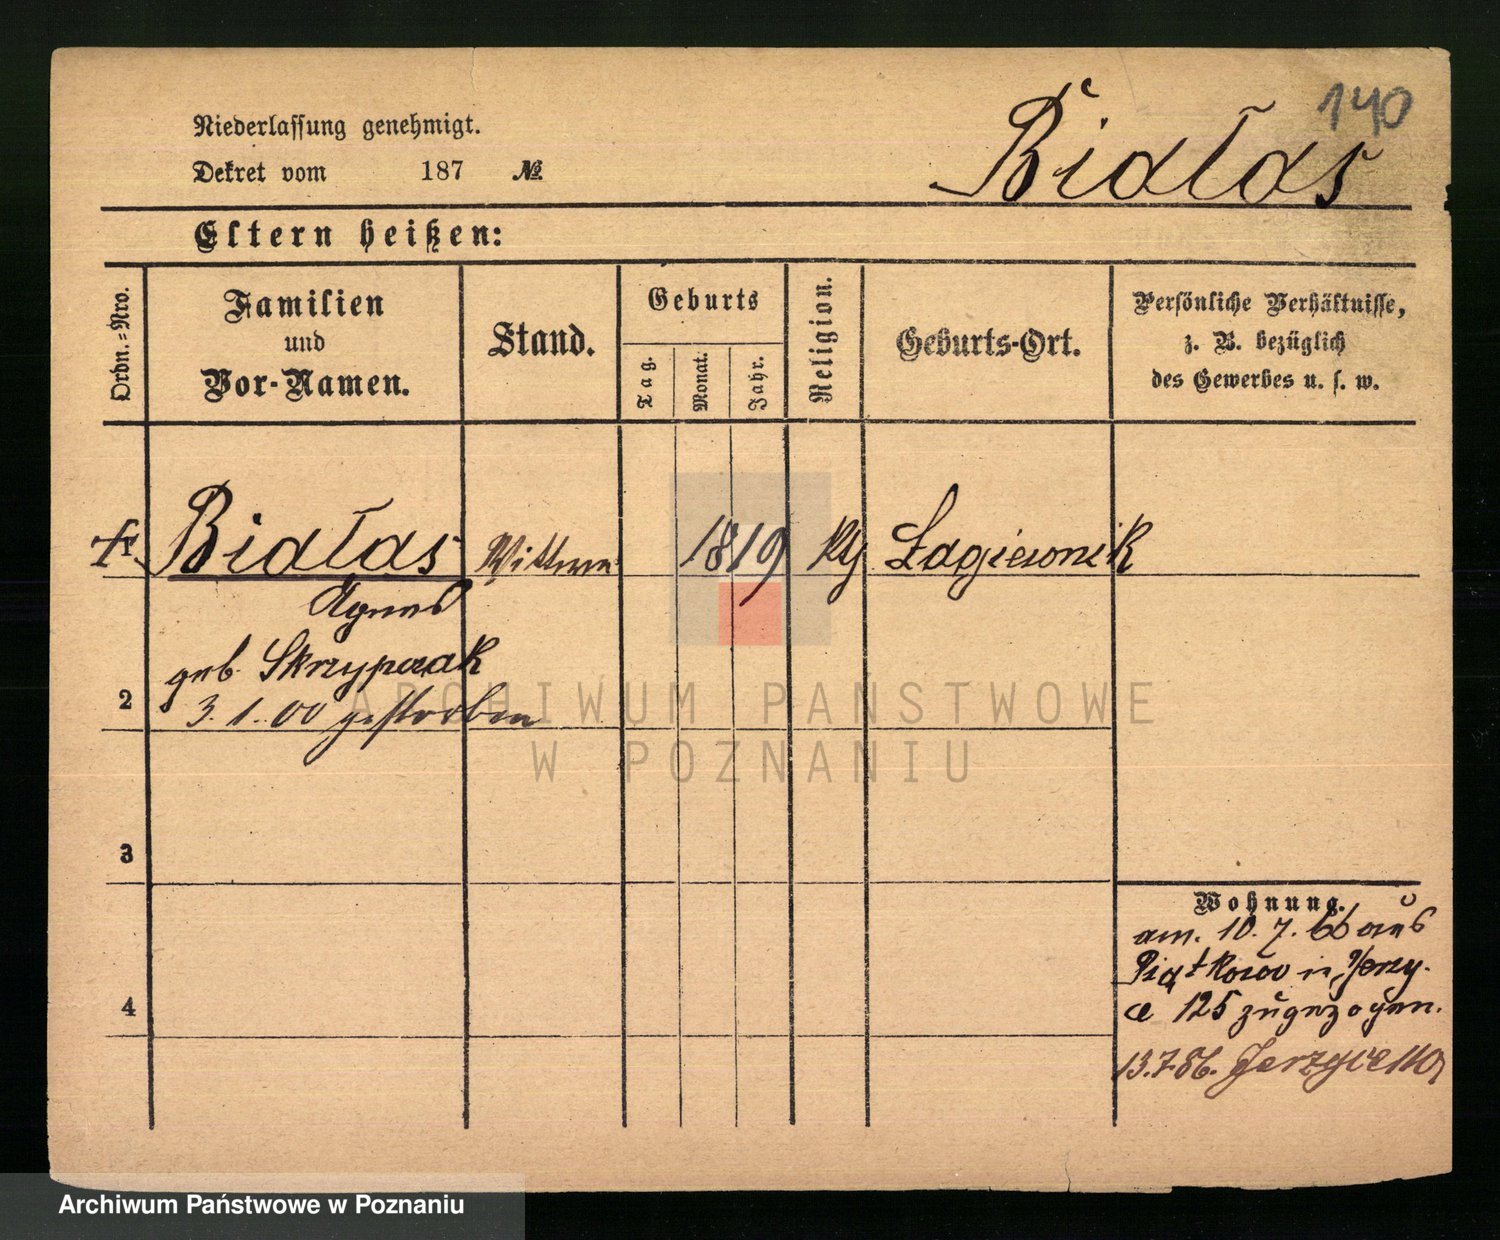 140
Białas
Niederlassung genehmigt.
Dekret vom 187 №
Eltern heißen:
Ordn.=Nro.
Familien
und
Vor-Namen.
Stand.
Geburts
Tag.
Monat.
Jahr.
Religion.
Geburts-Ort.
Persönliche Verhältnisse,
z. B. bezüglich
des Gewerbes u. s. w.
1 Białas Wittwe 1819 Kth Łagiewnik
Agnes
geb. Skrzypczak
2
3. 1. 00 gestorben
3
4
Wohnung.
am. 10. 7. 66 aus
Piątkowo in Jerzy-
ce 125 zugezogen.
13.7.86. Jerzyce
ARCHIWUM PAŃSTWOWE
W POZNANIU
Archiwum Państwowe w Poznaniu